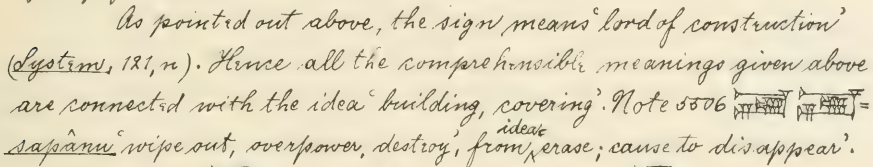 As pointed out above, the sign means 'lord of construction'
(System, 121, n). Hence all the comprehensible meanings given above
are connected with the idea 'building, covering'. Note 5506 =
sapânu 'wipe out, overpower, destroy', from idea 'erase; cause to disappear'.